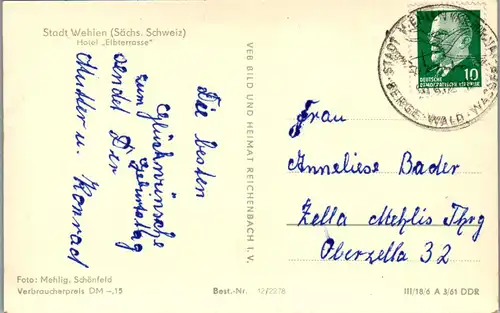 Stadt Wehlen (Sächs. Schweiz)
Hotel „Elbterrasse"
Die besten
Glückwünsche
zum Geburtstag
sendet Dir
Mutter u. Konrad
VEB BILD UND HEIMAT REICHENBACH I. V.
STADT WEHLEN
BERGE-WALD-WASSER
DEUTSCHE
DEMOKRATISCHE REPUBLIK
10
Frau
Anneliese Bader
Zella Mehlis Thrg
Oberzella 32
Foto: Mehlig, Schönfeld
Verbraucherpreis DM –,15
Best.-Nr. 12/2278
III/18/6 A 3/61 DDR